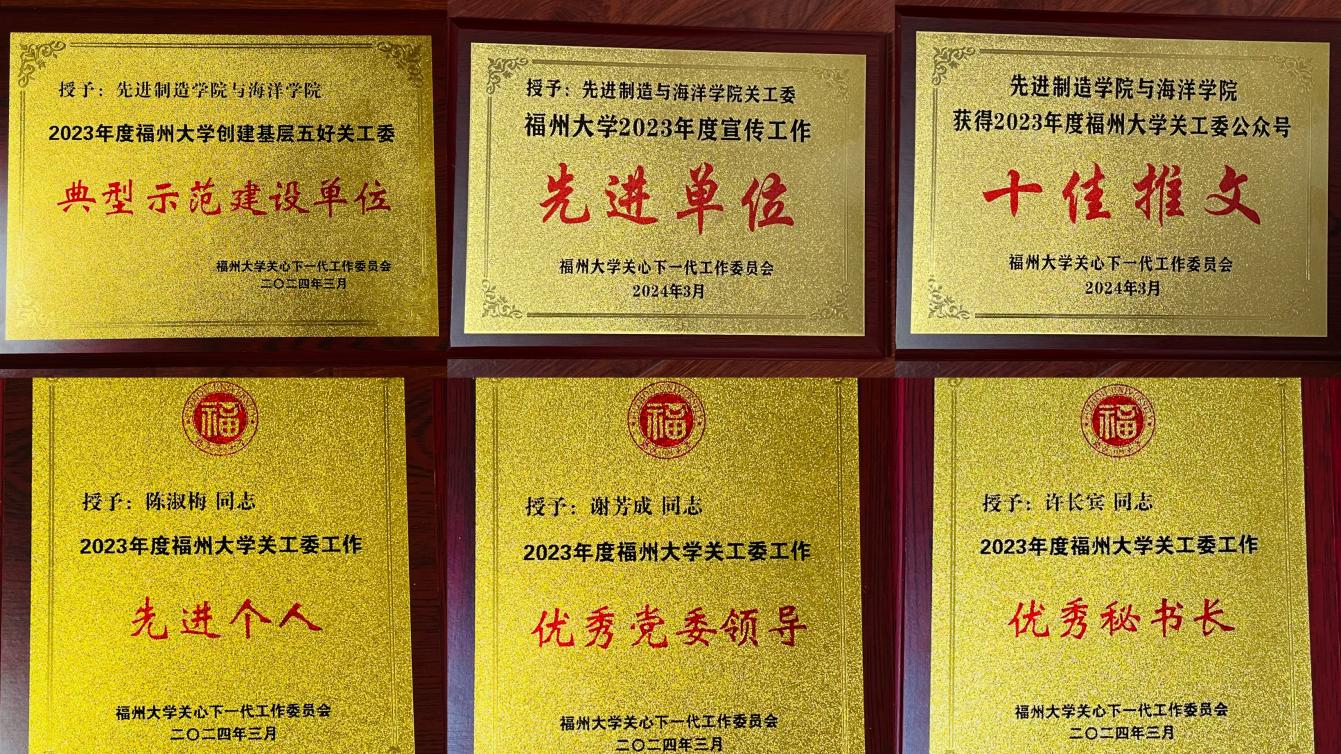 授予：先进制造学院与海洋学院
2023年度福州大学创建基层五好关工委
典型示范建设单位
福州大学关心下一代工作委员会
二〇二四年三月
授予：先进制造与海洋学院关工委
福州大学2023年度宣传工作
先进单位
福州大学关心下一代工作委员会
2024年3月
先进制造学院与海洋学院
获得2023年度福州大学关工委公众号
十佳推文
福州大学关心下一代工作委员会
2024年3月
福
授予：陈淑梅 同志
2023年度福州大学关工委工作
先进个人
福州大学关心下一代工作委员会
二〇二四年三月
福
授予：谢芳成 同志
2023年度福州大学关工委工作
优秀党委领导
福州大学关心下一代工作委员会
二〇二四年三月
福
授予：许长宾 同志
2023年度福州大学关工委工作
优秀秘书长
福州大学关心下一代工作委员会
二〇二四年三月